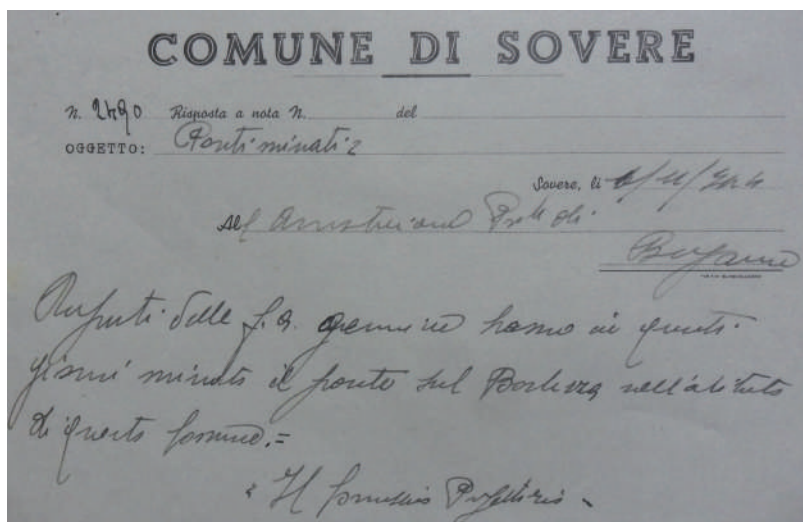 COMUNE DI SOVERE
N. 2490 Risposta a nota N. del
OGGETTO: Ponti minati
Sovere, li
All'Amministrazione di
Bergamo
Reparti delle f. a. hanno in questi
giorni minato il ponte sul Borlezza nell'abitato
di questo Comune.=
Il Commissario Prefettizio